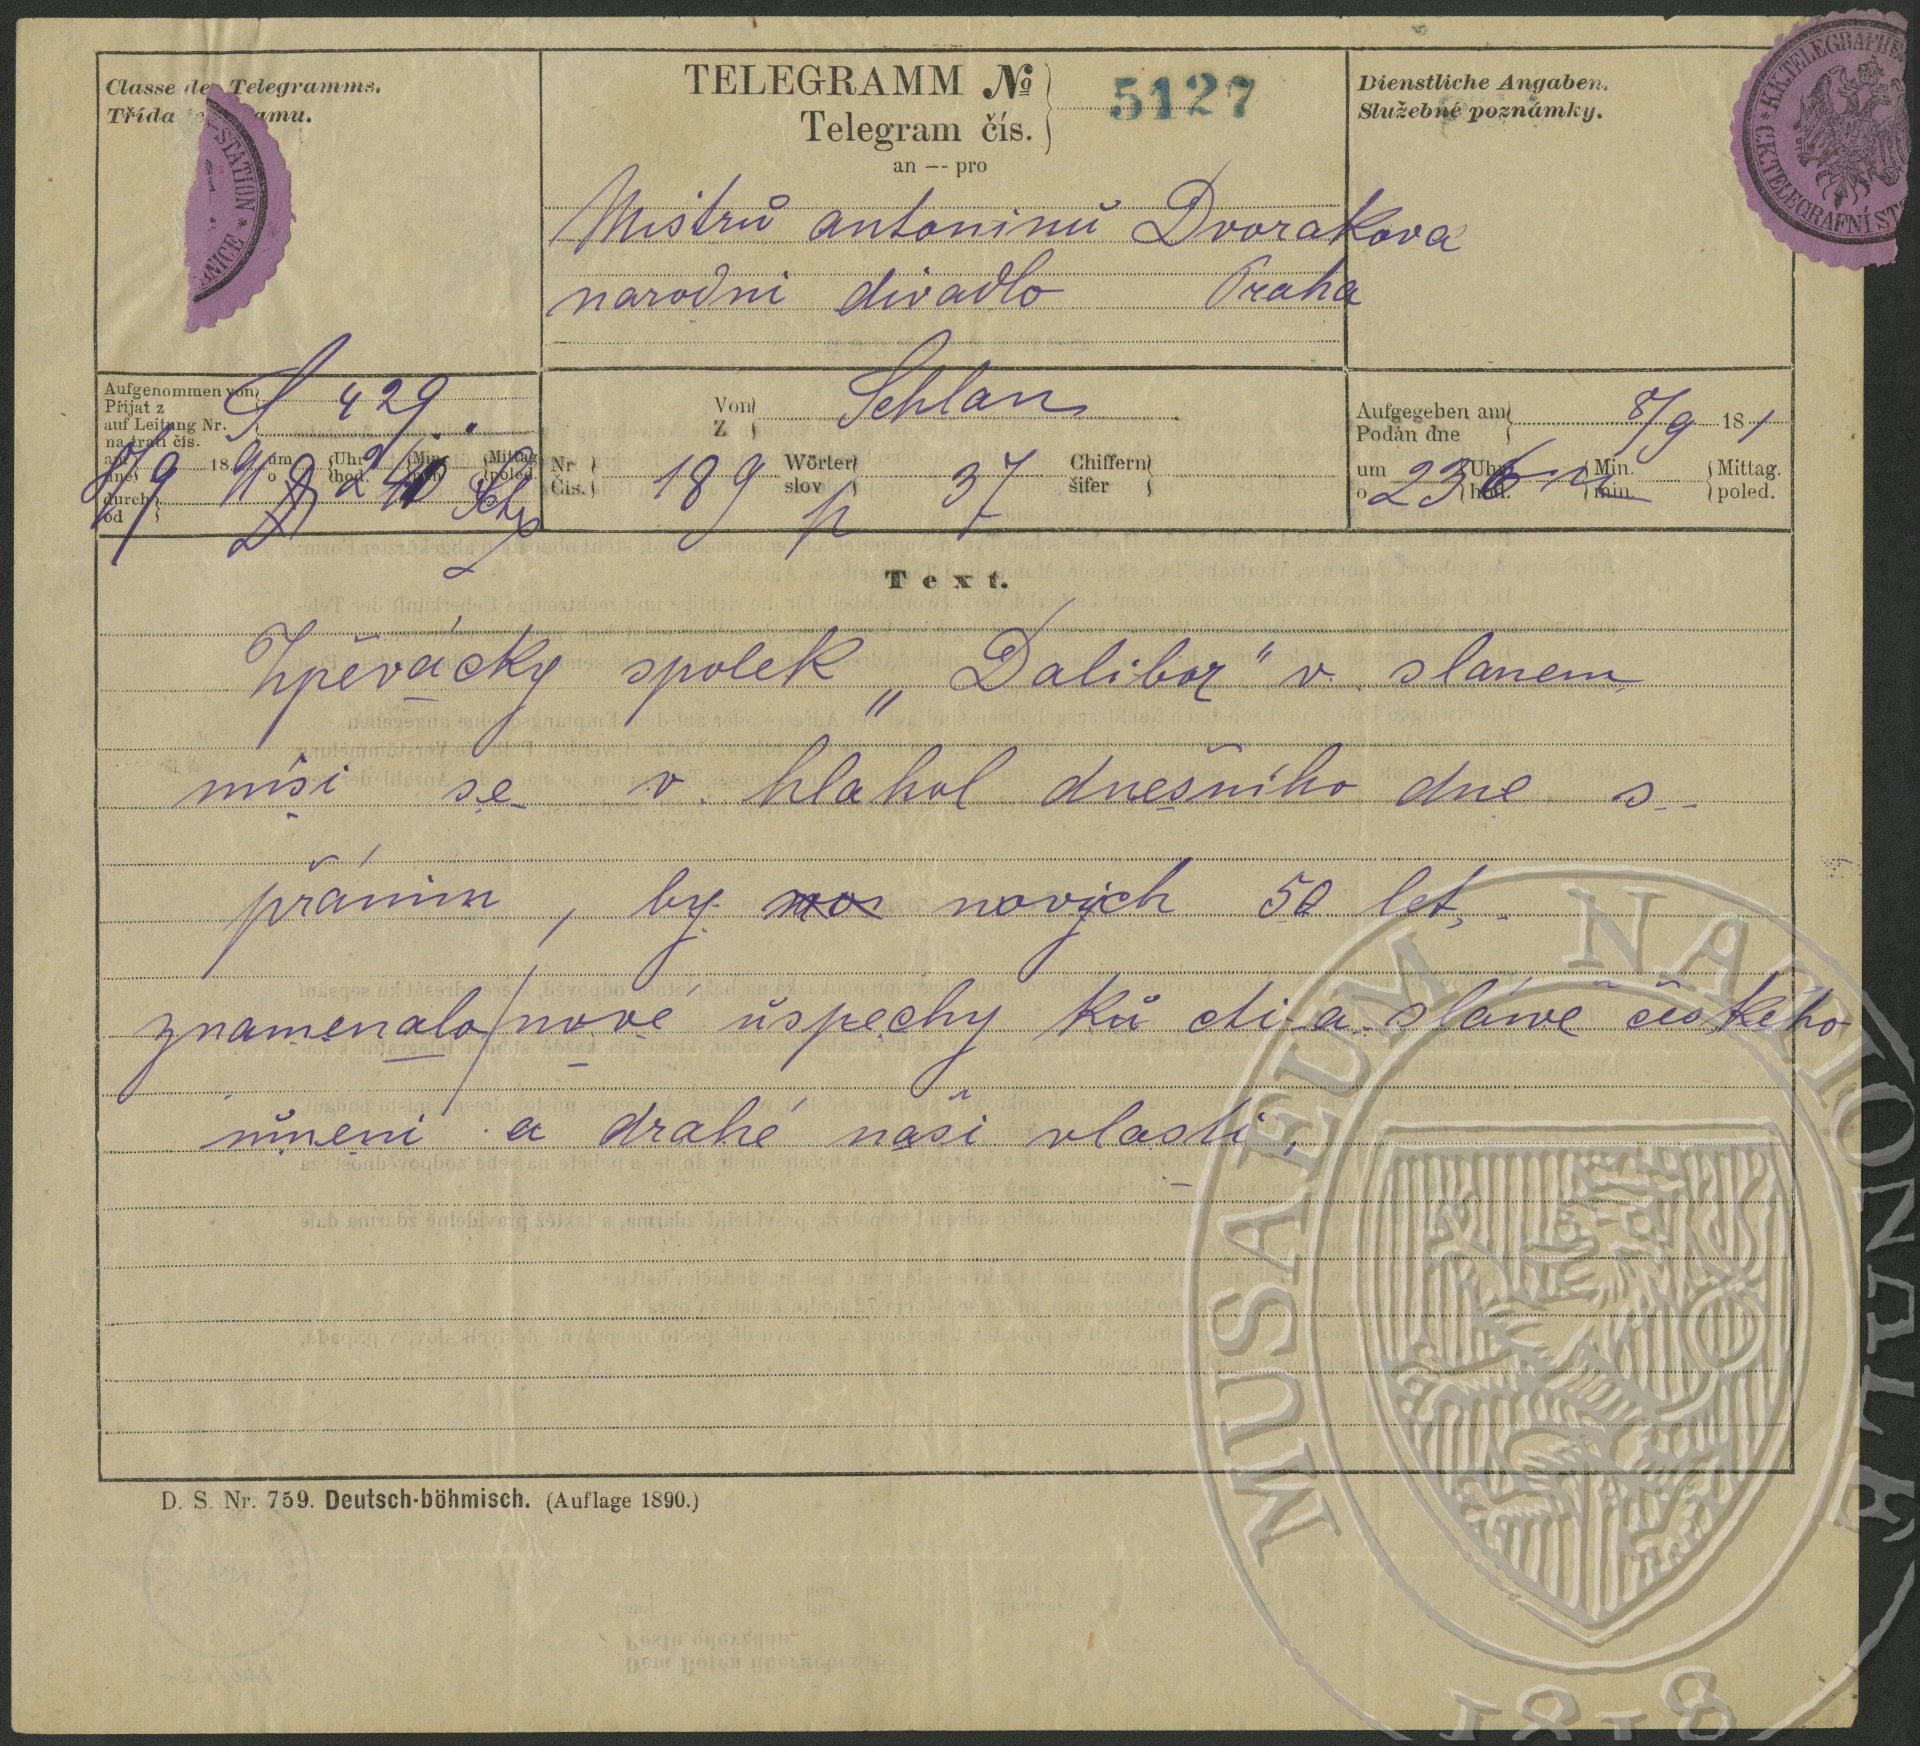 Classe des Telegramms.
Třída telegramu.
TELEGRAMM №
Telegram čís.
5127
an — pro
Dienstliche Angaben.
Služebné poznámky.
K.K. TELEGRAPHEN
C.K. TELEGRAFNÍ ST
-STATION *
NICE *
Mistrů antoninů Dvorakova
narodni divadlo Praha
Aufgenommen von
Přijat z
auf Leitung Nr.
na trati čís.
429
am
dne
8/9 18 91
um
o
Uhr
hod.
Min.
min.
Mittag
poled.
durch
od
Von
Z
Schlan
Nr
Čís.
189
Wörter
slov
37
Chiffern
šifer
Aufgegeben am
Podán dne
8/9 18 1
um
o
Uhr
hod.
Min.
min.
Mittag.
poled.
Text.
Zpěvácky spolek „Dalibor" v slanem
misi se v hlahol dnešního dne s
přánim, by nových 50 let
znamenalo nové úspechy ků cti a sláve českého
umeni a drahé naši vlasti,
D. S. Nr. 759. Deutsch-böhmisch. (Auflage 1890.)
MUSAEUM NATIONALE
1818